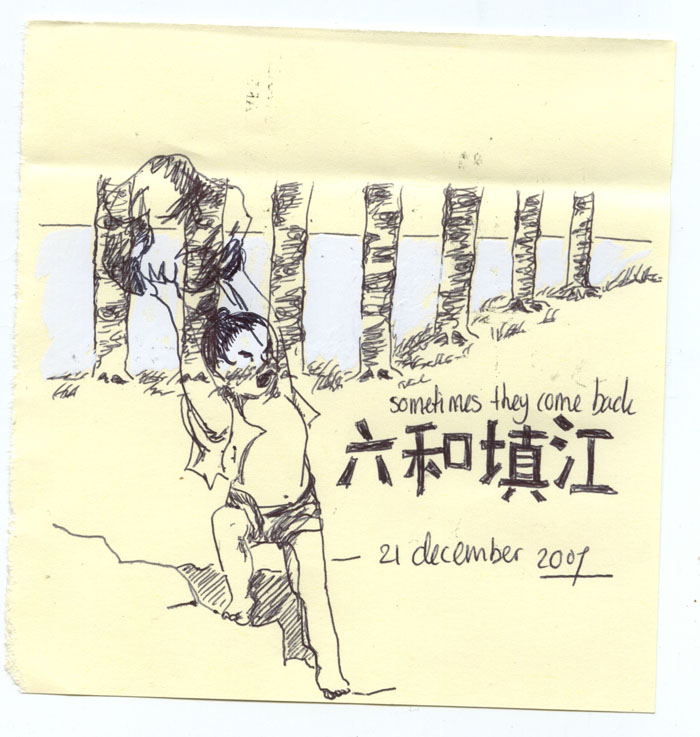 sometimes they come back
六和填江
21 december 2007